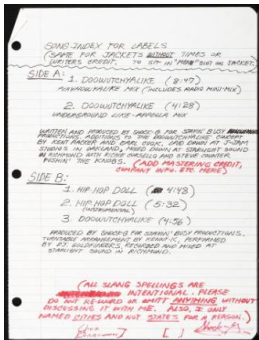 SONG INDEX FOR LABELS
(SAME FOR JACKETS WITHOUT TIMES OR
WRITERS CREDIT. TO SIT IN "MENU" BUT ON JACKET)
SIDE A:
1. DOOWUTCHYALIKE (8:47)
MIXHOWYALIKE MIX (INCLUDES RADIO MINI-MIX)
2. DOOWUTCHYALIKE (4:28)
UNDERGROUND LIKE-APPELLA MIX
WRITTEN AND PRODUCED BY SHOCK G FOR STAYIN BUSY
PRODUCTIONS. ADDITIONS TO THE DOOWUTCHYALIKE CONCEPT
BY KENT RACKER AND EARL COOK. LAID DOWN AT J-JAM
STUDIO IN OAKLAND, MIXED DOWN AT STARLIGHT SOUND
IN RICHMOND WITH RICHIE AND STEVE COUNTER
PUSHIN' THE KNOBS. (ADD MASTERING CREDIT,
COMPANY INFO. ETC. HERE)
SIDE B:
1. HIP HOP DOLL 4:48)
2. HIP HOP DOLL (5:32)
(INSTRUMENTAL)
3. DOOWUTCHYALIKE (4:56)
PRODUCED BY SHOCK G FOR STAYIN' BUSY PRODUCTIONS.
ARRANGEMENT BY KENNY-K, PERFORMED
BY RECORDED AND MIXED AT
STARLIGHT SOUND IN RICHMOND.
(ALL SLANG SPELLINGS ARE
INTENTIONAL. PLEASE
DO NOT RE-WORD OR OMITT ANYTHING WITHOUT
DISCUSSING IT WITH ME. ALSO, I ONLY
NAMED CITIES AND NOT STATES FOR A REASON.)